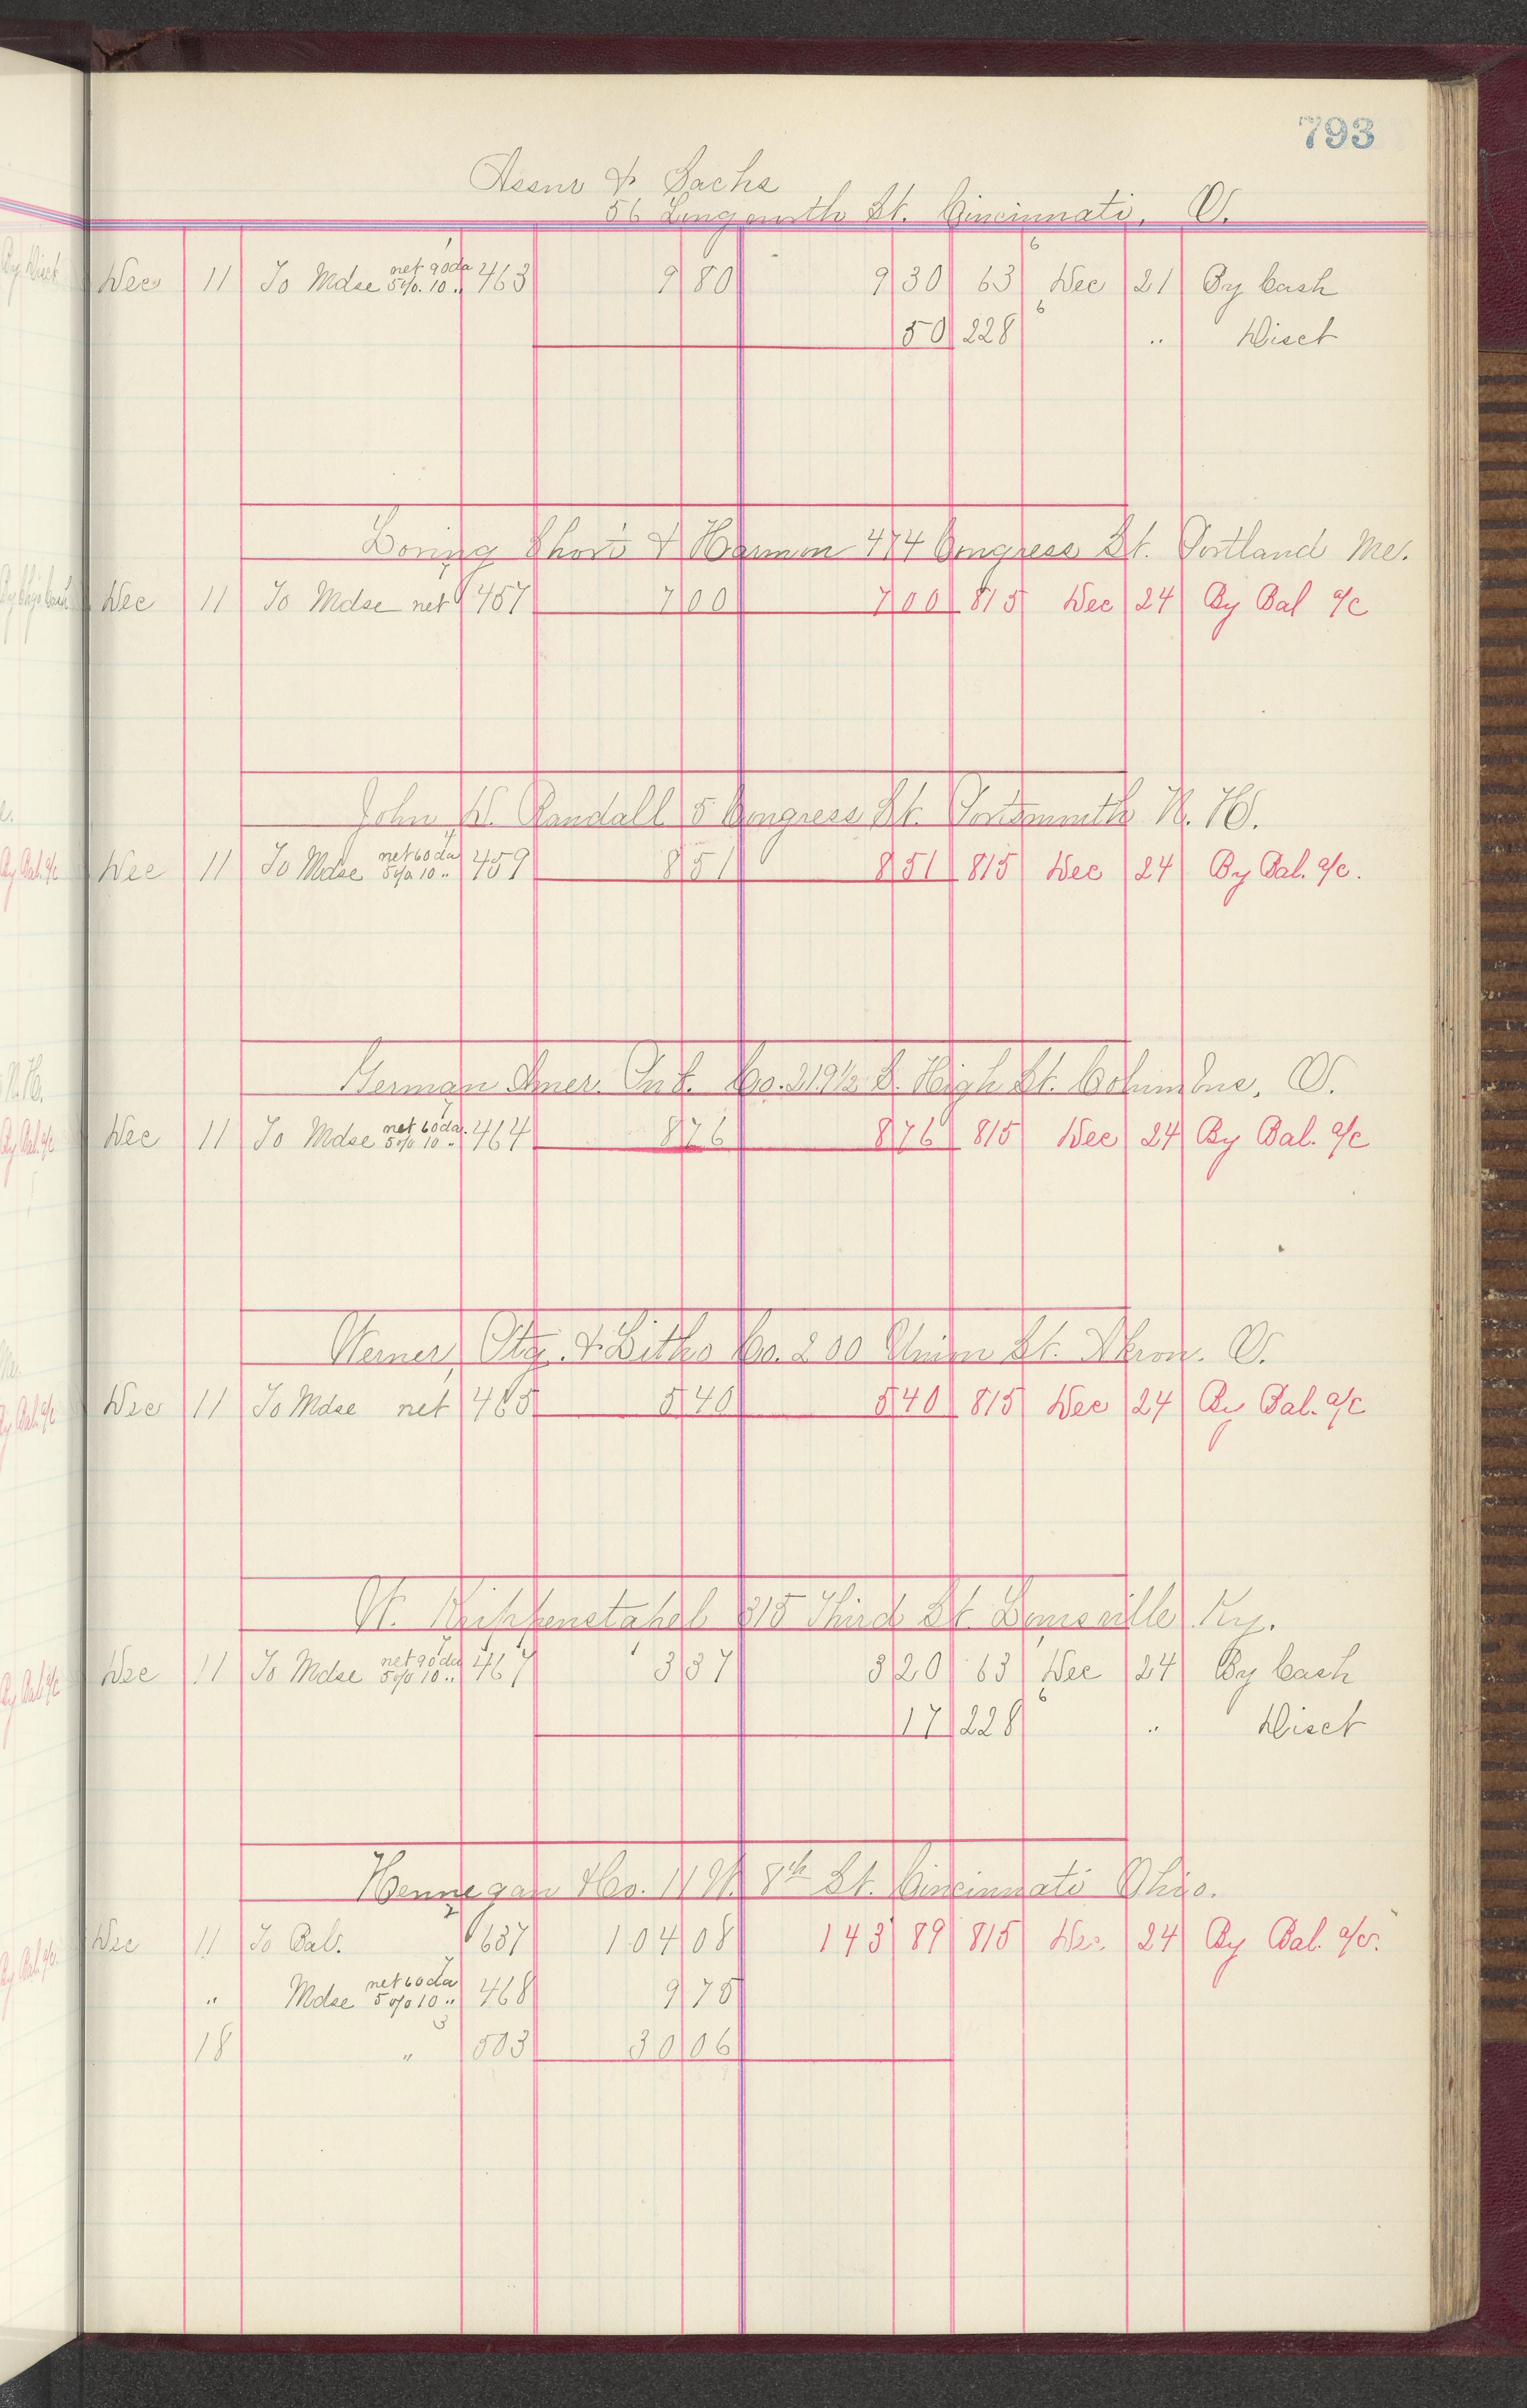 793
& Sachs
56 Longworth St. Cincinnati, O.
Dec 11 To Mdse net 90da 5% 10 " 463 9 80 9 30 63 Dec 21 By Cash
50 228 " Disct
Loring Short & Harmon 474 Congress St. Portland Me.
Dec 11 To Mdse net 457 7 00 7 00 815 Dec 24 By Bal a/c
John W. Randall 5 Congress St. Portsmouth N. H.
Dec 11 To Mdse net 60 da 5% 10 " 459 8 51 8 51 815 Dec 24 By Bal. a/c.
German Amer. Ins. Co. 219 1/2 S. High St. Columbus, O.
Dec 11 To Mdse net 60da. 5% 10 " 464 8 76 8 76 815 Dec 24 By Bal. a/c
Werner Ptg. & Litho Co. 200 Union St. Akron. O.
Dec 11 To Mdse net 465 5 40 5 40 815 Dec 24 By Bal. a/c
W. Krippenstapel 315 Third St. Louisville Ky.
Dec 11 To Mdse net 90 da 5% 10 " 467 3 37 3 20 63 Dec 24 By Cash
17 228 " Disct
Hennegan & Co. 11 W. 8th St. Cincinnati Ohio.
Dec 11 To Bal. 637 104 08 143 89 815 Dec. 24 By Bal. a/c.
" Mdse net 60 da 5% 10 " 468 9 75
18 " 503 30 06